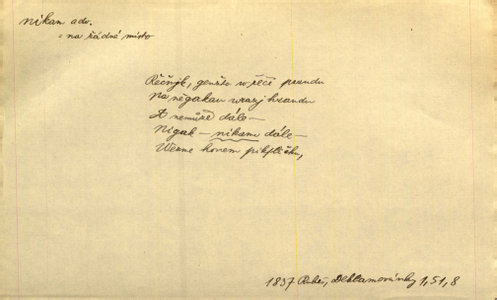 nikam adv.
= na žádné místo
Řečnjk, genžto w řeči prawdu
Naněgakau wrazj hrandu
A nemůže dále –
Nigak – nikam dále –
Wezme honem
1837 Rubeš, Deklamovánky 1,51,8